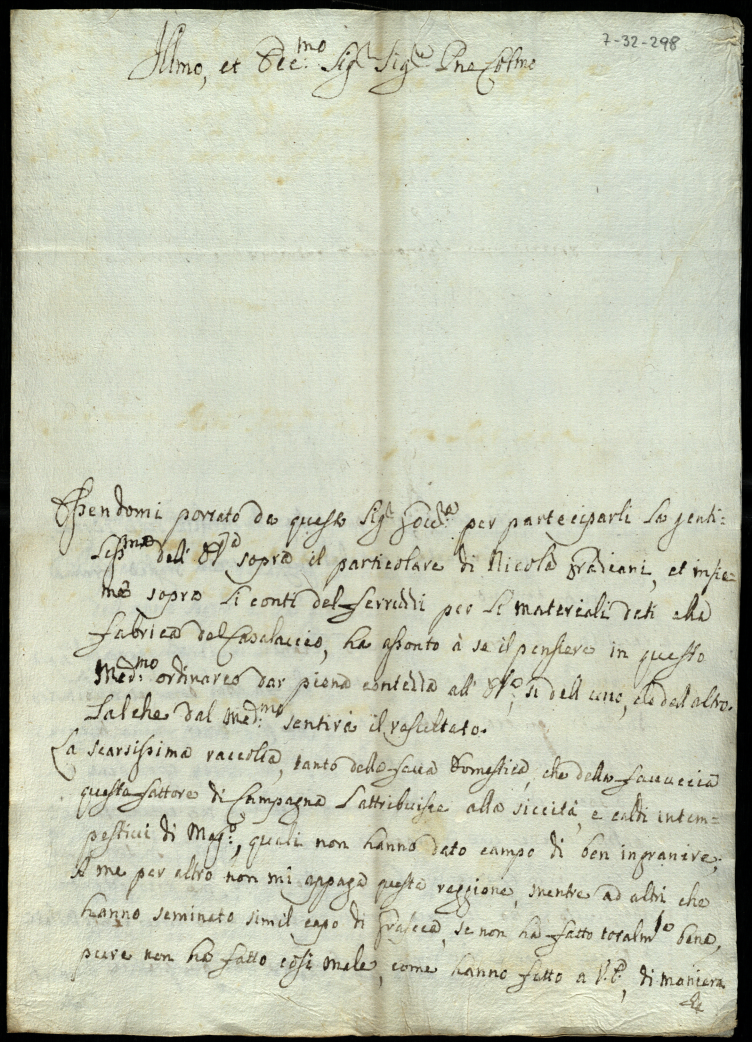 7-32-298
Illmo, et Ecc.mo Sig.r Sig.r Pne Col.mo
Essendomi portato da questo Sig.r per parteciparli la genti=
lis.ma dell' sopra il particolare di Nicola Gradiani, et insie=
me sopra li conti del Ferruzzi per li materiali dati alla
fabrica del Casalaccio, ha assonto à se il pensiere in questo
Med.mo ordinareo dar piena contezza all' , sì dell'uno, che dell'altro.
Talche dal Med.mo sentirà il resultato.
La scarsissima raccolta, tanto della fava Domestica, che della favuccia
questo fattore di Campagna l'attribuisce alla siccità, e caldi intem=
pestivi di Mag.o, quali non hanno dato campo di ben ingranire,
A me per altro non mi appaga questa raggione, mentre ad altri che
hanno seminato simil capo di , se non ha fatto totalm.te bene,
pure non ha fatto così male, come hanno fatto a V.E., di maniera